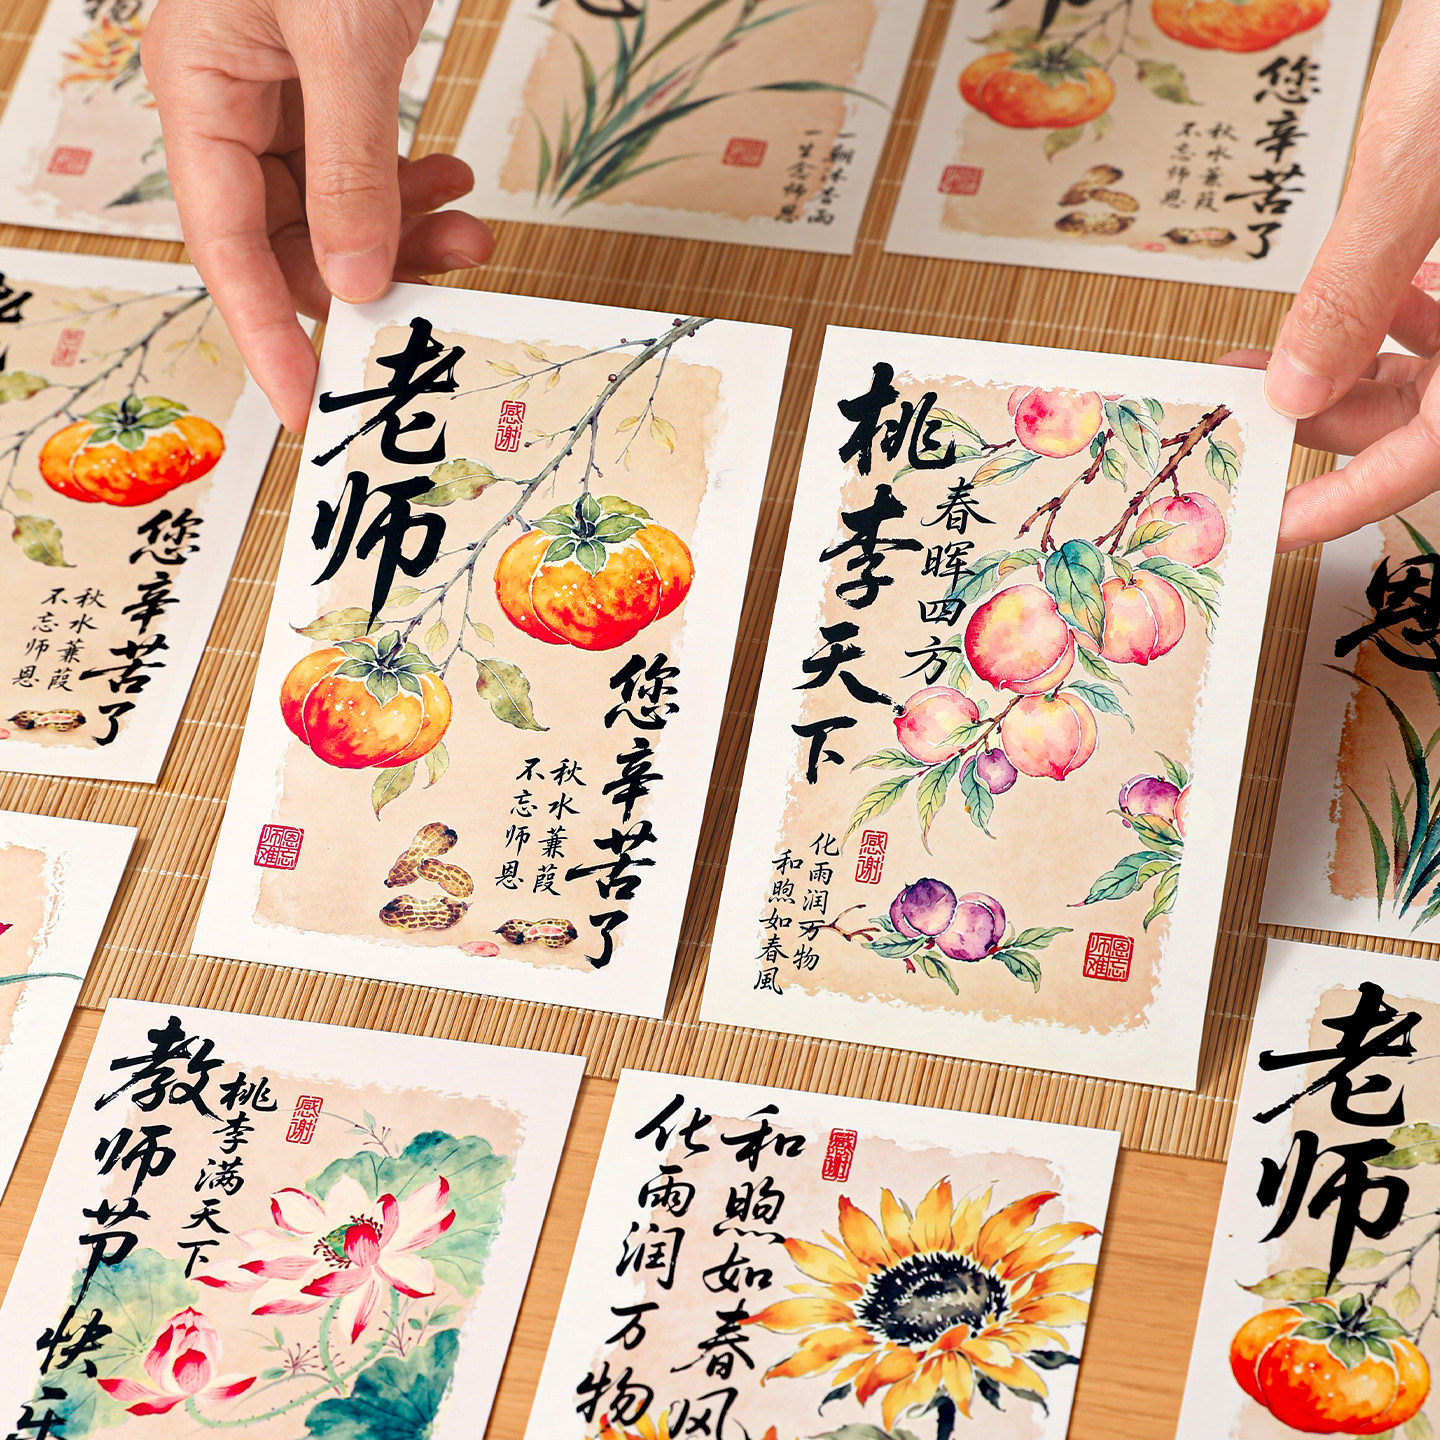 物
一朝沐杏雨
一生念师恩
您辛苦了
秋水蒹葭
不忘师恩
您辛苦了
秋水蒹葭
不忘师恩
老师
感谢
您辛苦了
秋水蒹葭
不忘师恩
师恩难忘
桃李天下
春晖四方
化雨润万物
和煦如春風
感谢
师恩难忘
恩
教师节快乐
桃李满天下
感谢
化雨润万物
和煦如春风
感谢
老师